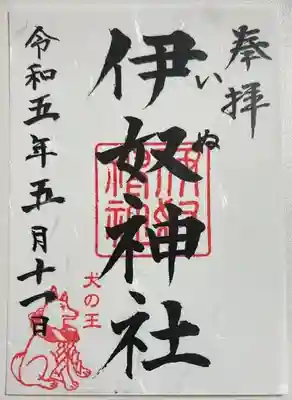 奉拝
いぬ
伊奴神社
犬の王
令和五年五月十一日